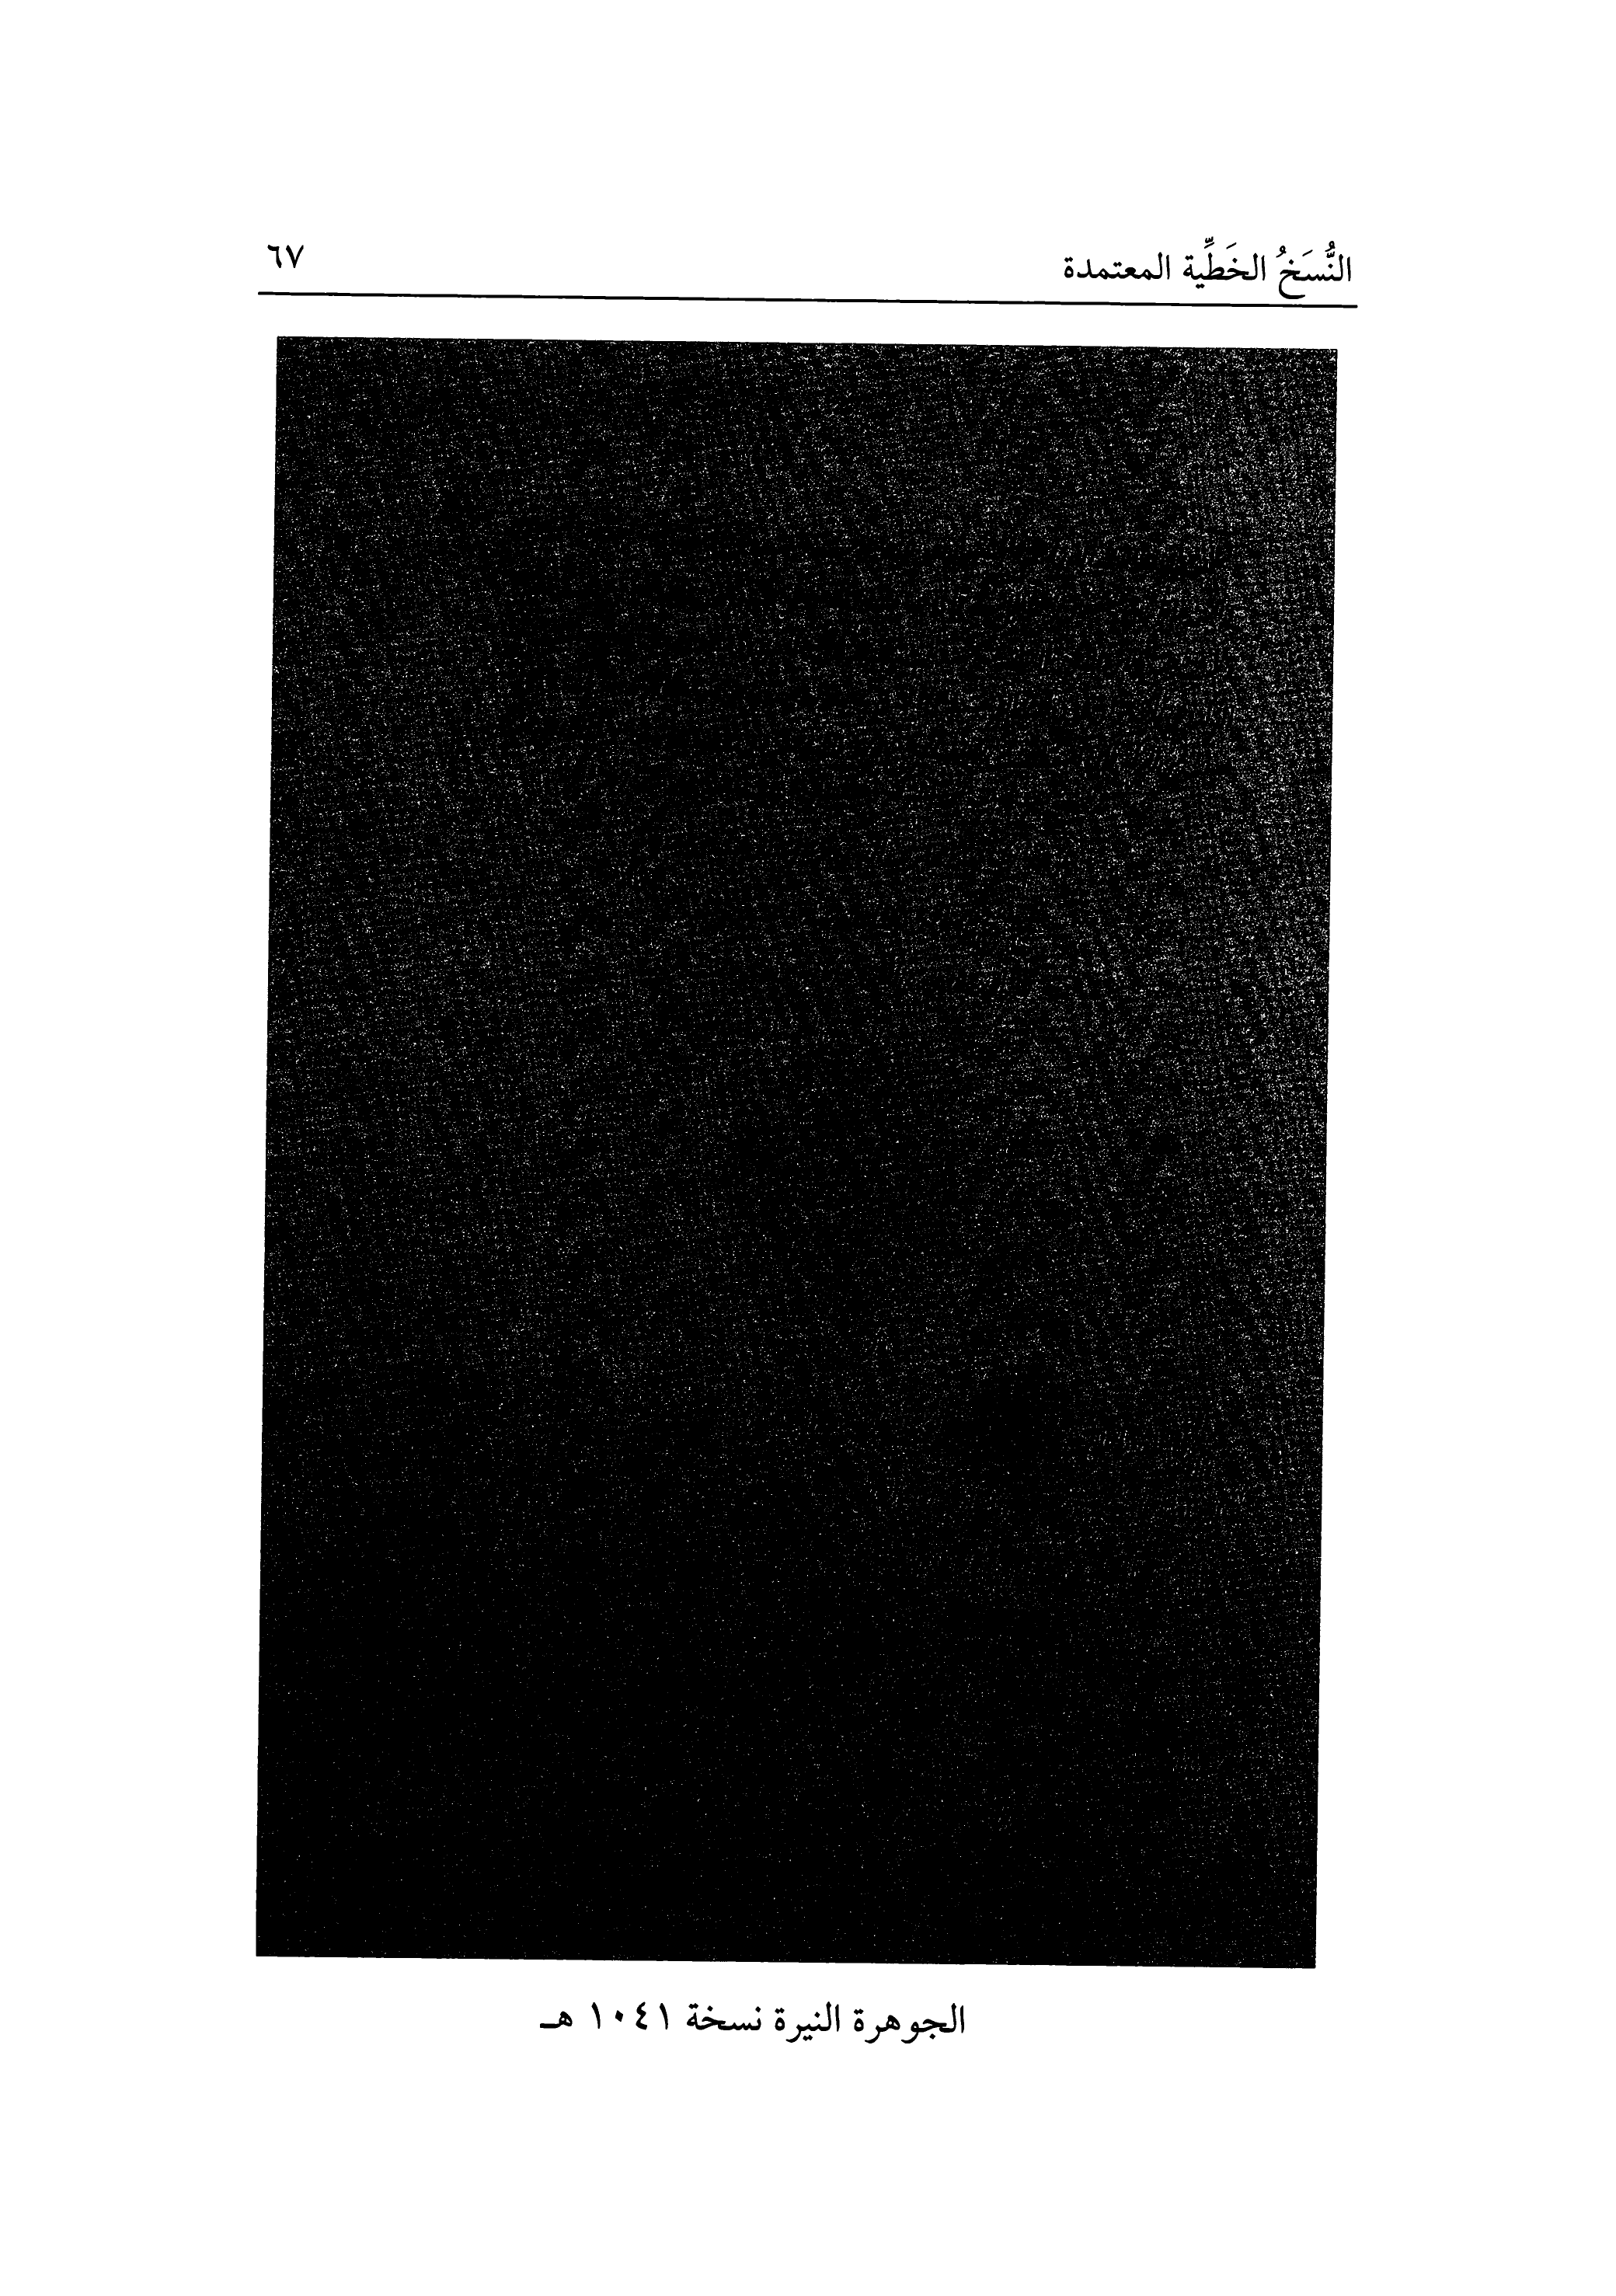 النُّسَخُ الخَطِّية المعتمدة ٦٧
الجوهرة النيرة نسخة ١٠٤١ هـ